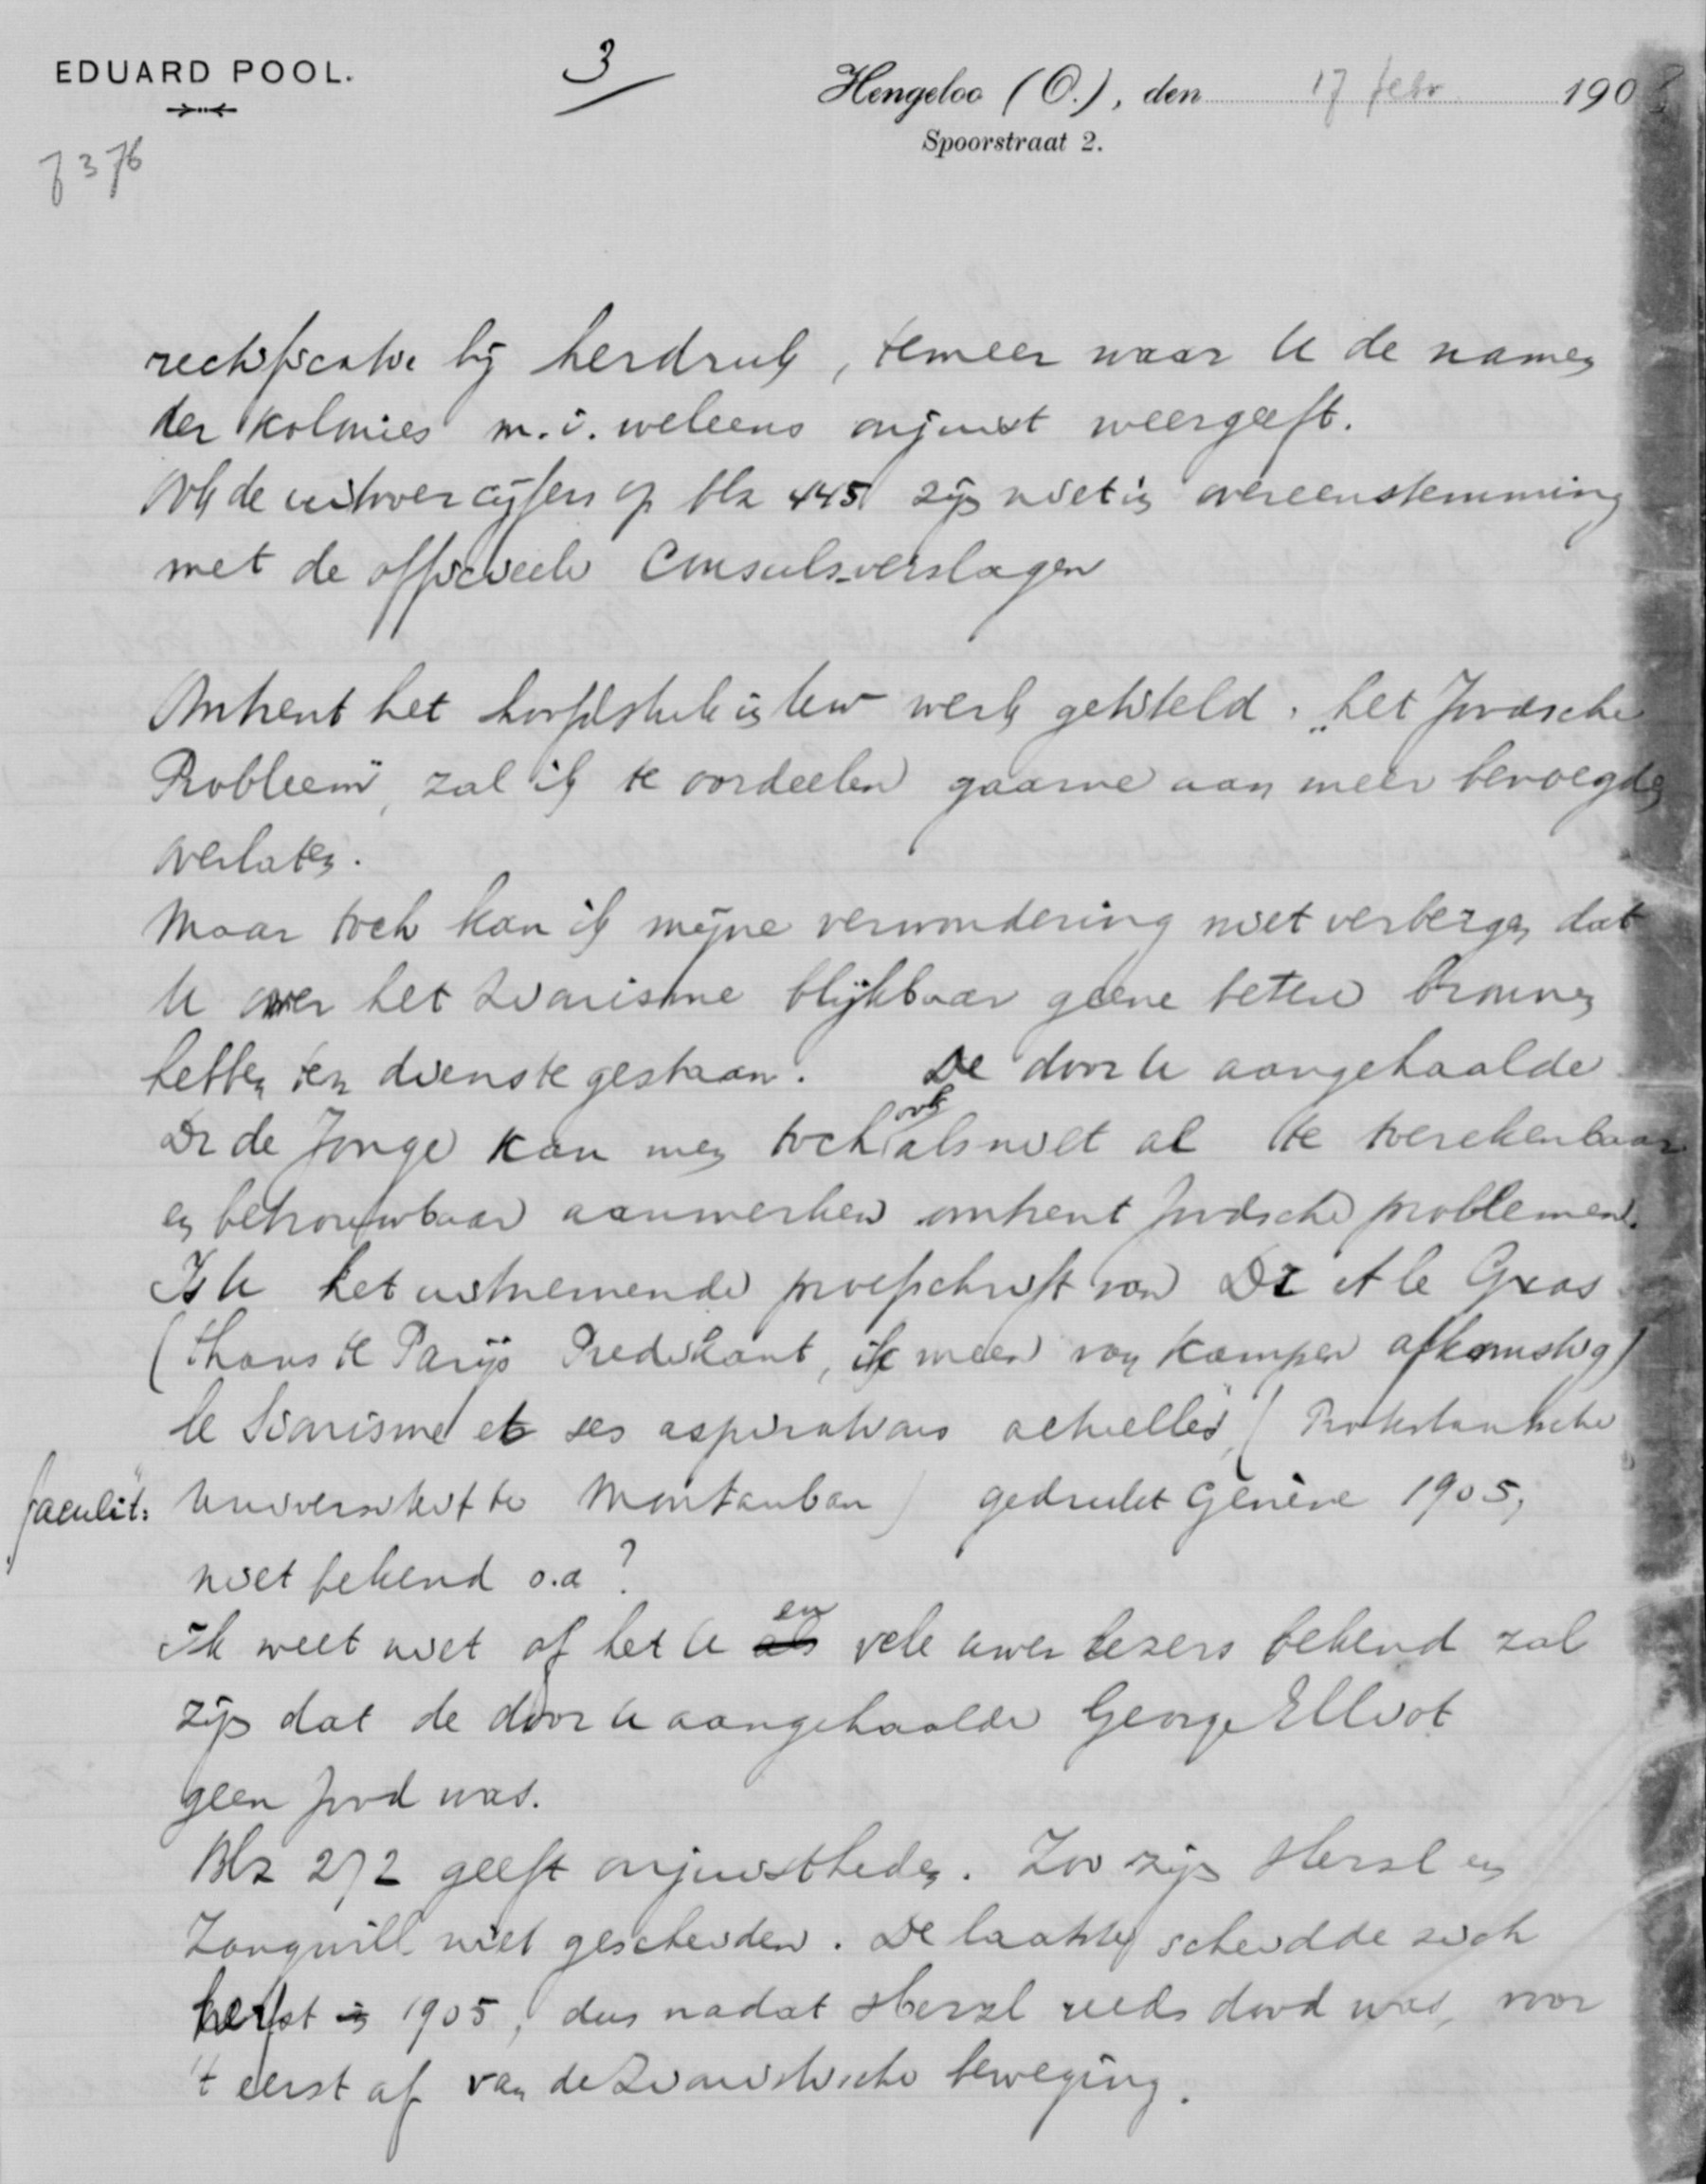 EDUARD POOL.
3
Hengeloo (O.), den 17 febr 190
Spoorstraat 2.
7376
rectificatie bij herdruk, temeer waar U de namen
der Kolonies m.i. weleens onjuist weergeeft.
Ook de uitvoercijfers op blz 445 zijn niet in overeenstemming
met de officieele Consulsverslagen
Omtrent het hoofdstuk in Uw werk getiteld: „het Joodsche
Probleem", zal ik te oordeelen gaarne aan meer bevoegden
overlaten.
Maar toch kan ik mijne verwondering niet verbergen dat
U over het Zionisme blijkbaar geene betere bronnen
hebben ten dienste gestaan. De door U aangehaalde
Dr de Jonge kan men toch ook als niet al te toerekenbaar
en betrouwbaar aanmerken omtrent Joodsche problemen.
Is U het uitnemende proefschrift van Dr A le Gras
(thans te Parijs Predikant, ik meen van Kampen afkomstig)
le Sionisme et ses aspirations actuelles" (Protestantsche
faculit: Universiteit te Montauban) gedrukt Genève 1905,
niet bekend o.a?
Ik weet niet of het U als en vele uwer lezers bekend zal
zijn dat de door U aangehaalde George Elliot
geen Jood was.
Blz 272 geeft onjuistheden. Zoo zijn Herzl en
Zangwill niet gescheiden. De laatste scheidde zich
herfst in 1905, dus nadat Herzl reeds dood was, voor
't eerst af van de Zionistische beweging.